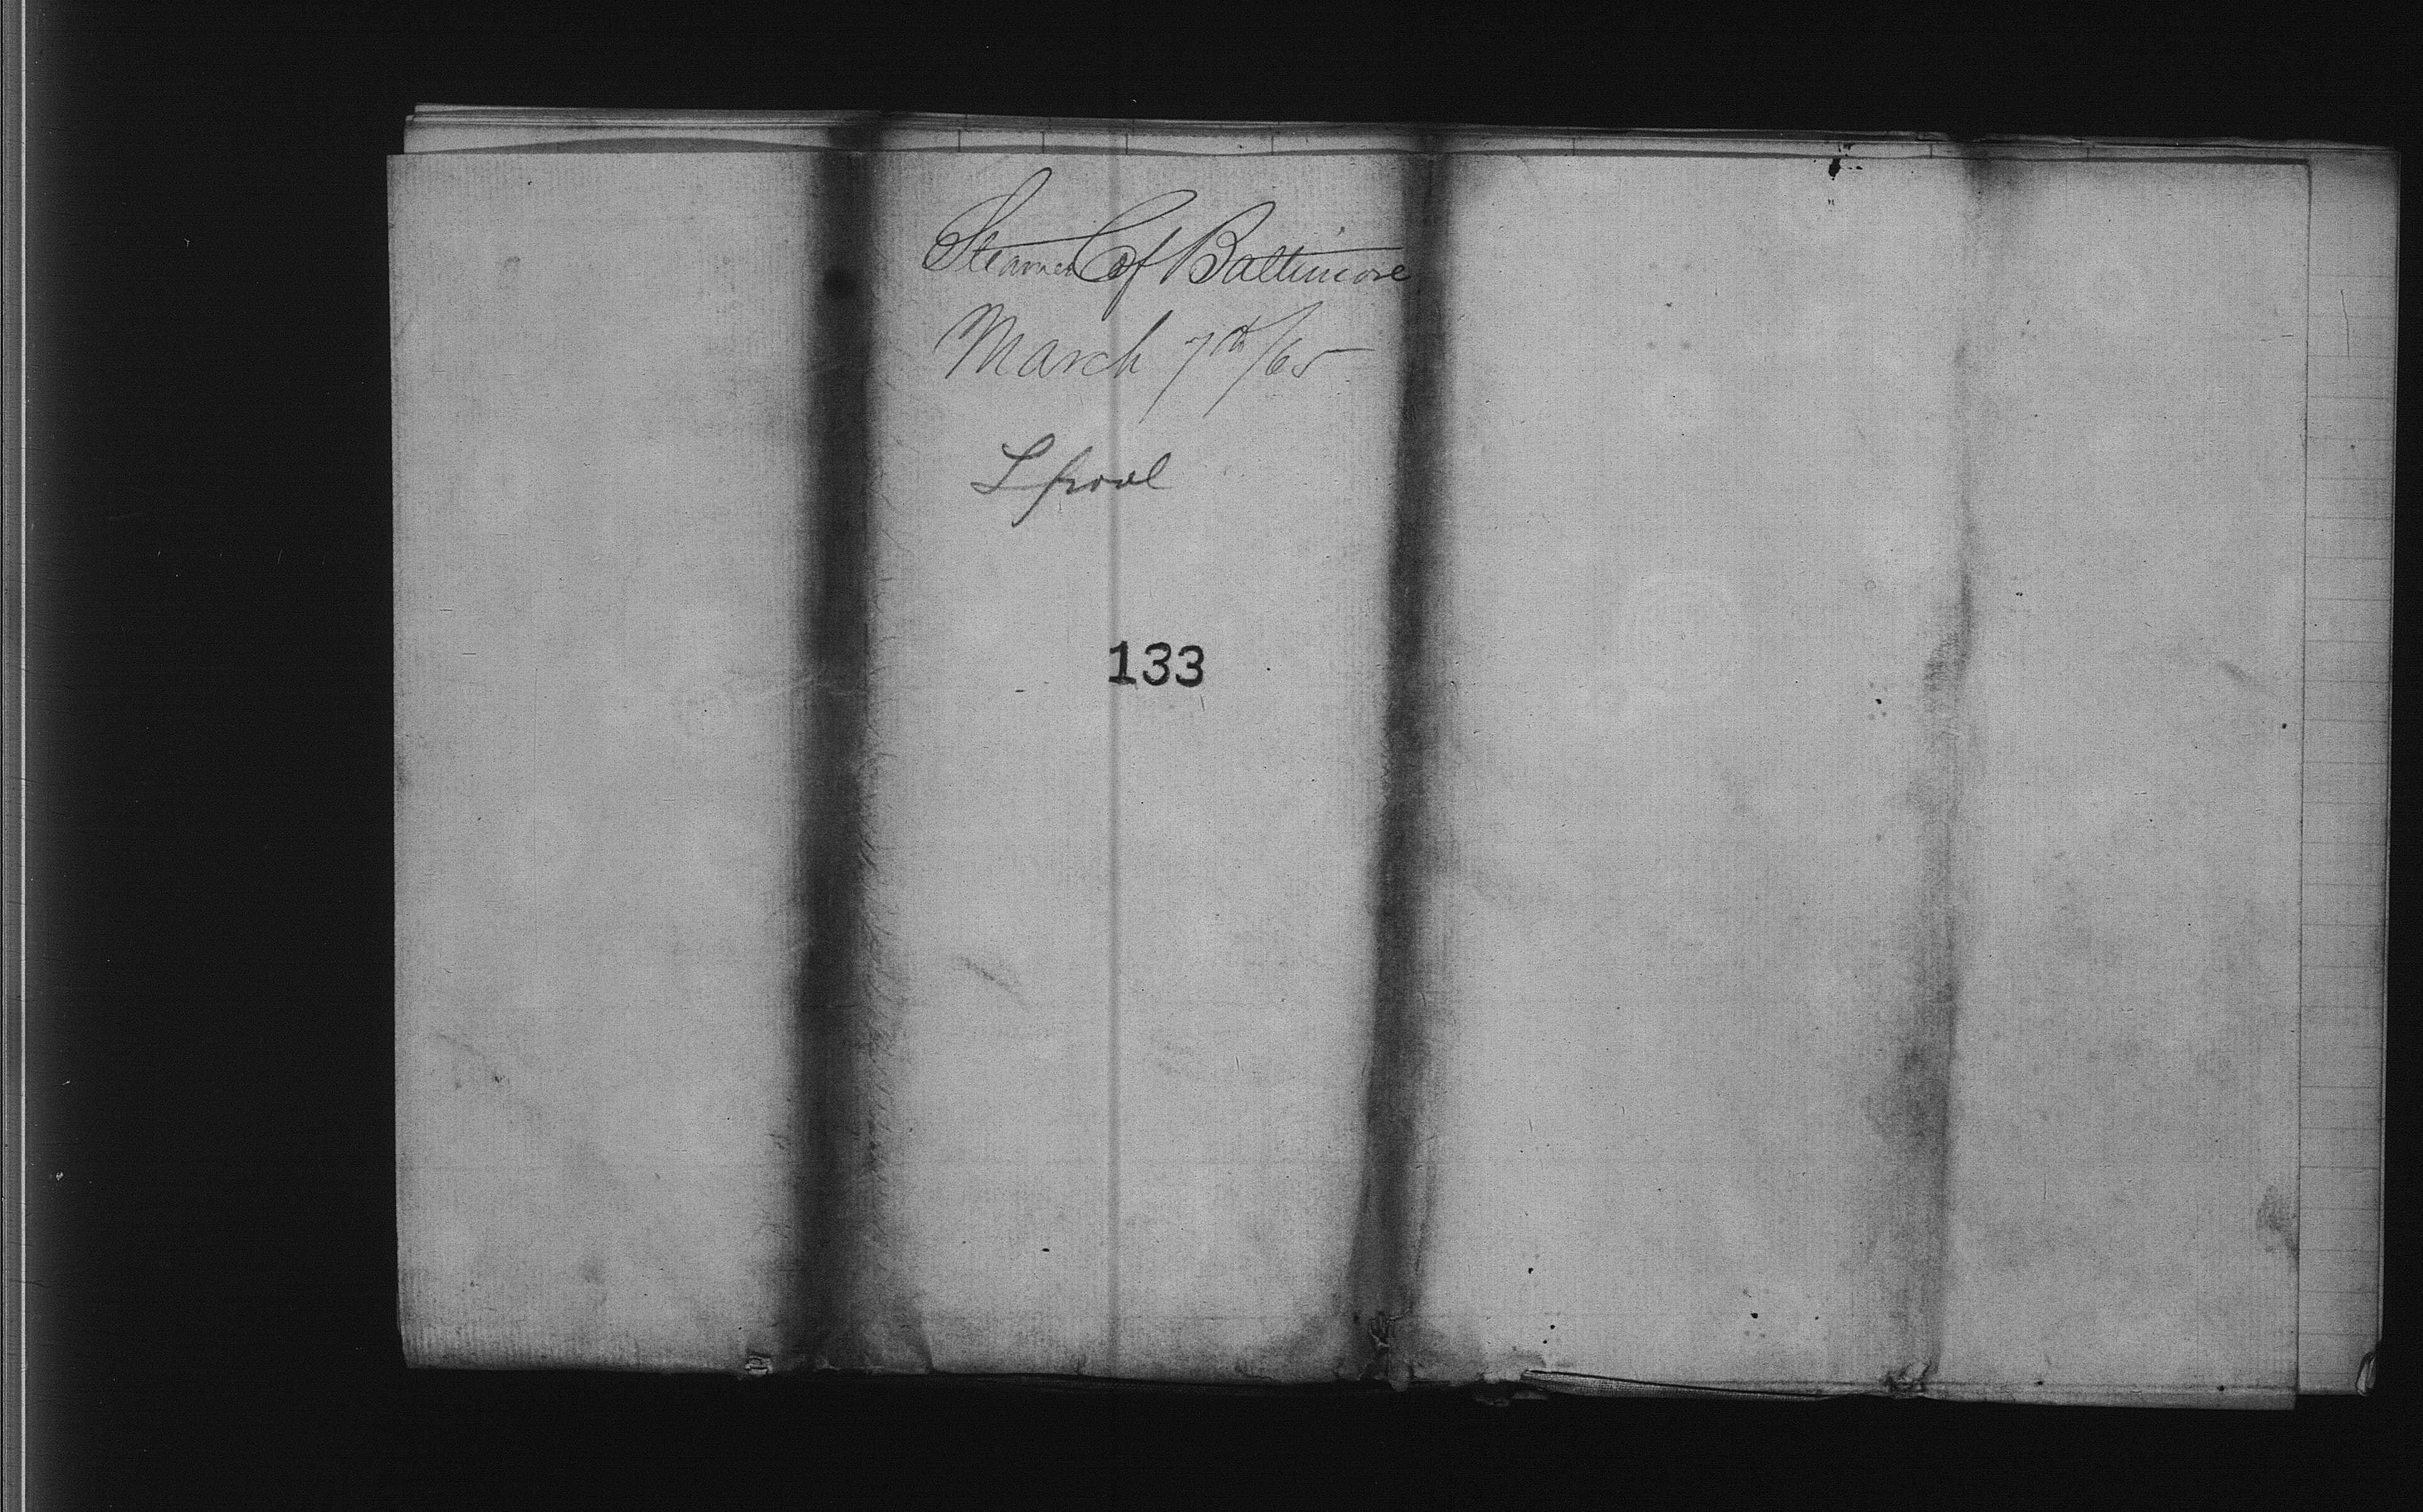 Steamer C of Baltimore
March 7th/65
Lpool
133